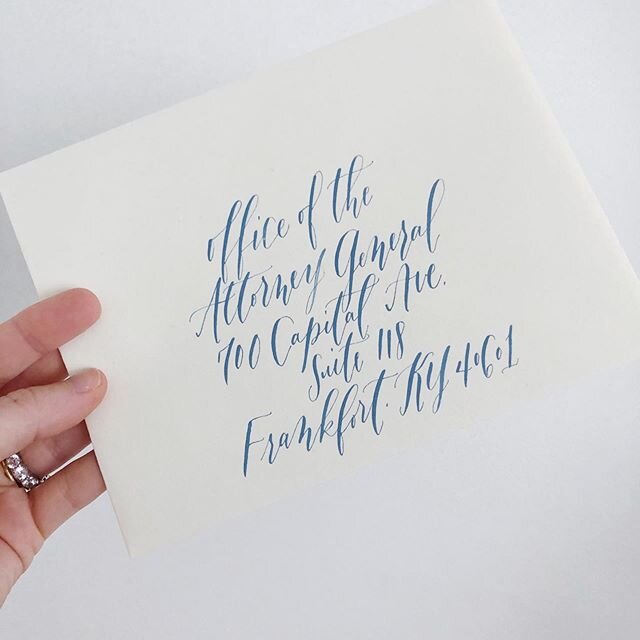 Office of the
Attorney General
700 Capital Ave.
Suite 118
Frankfort. KY 40601